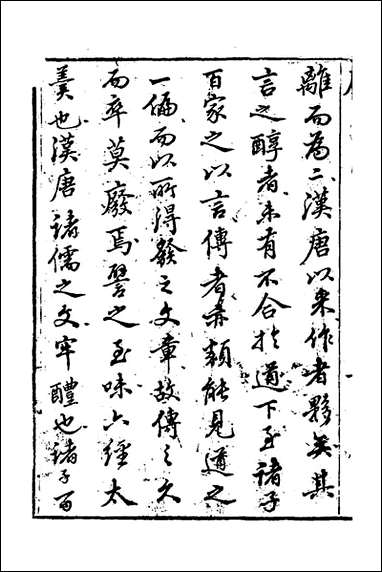 離而為二漢唐以來作者夥矣其
言之醇者未有不合於道下至諸子
百家之以言傳者亦類能見道之
一偏而以所得發之文章故傳之久
而卒莫廢焉譬之至味六經太
羹也漢唐諸儒之文牢醴也諸子百